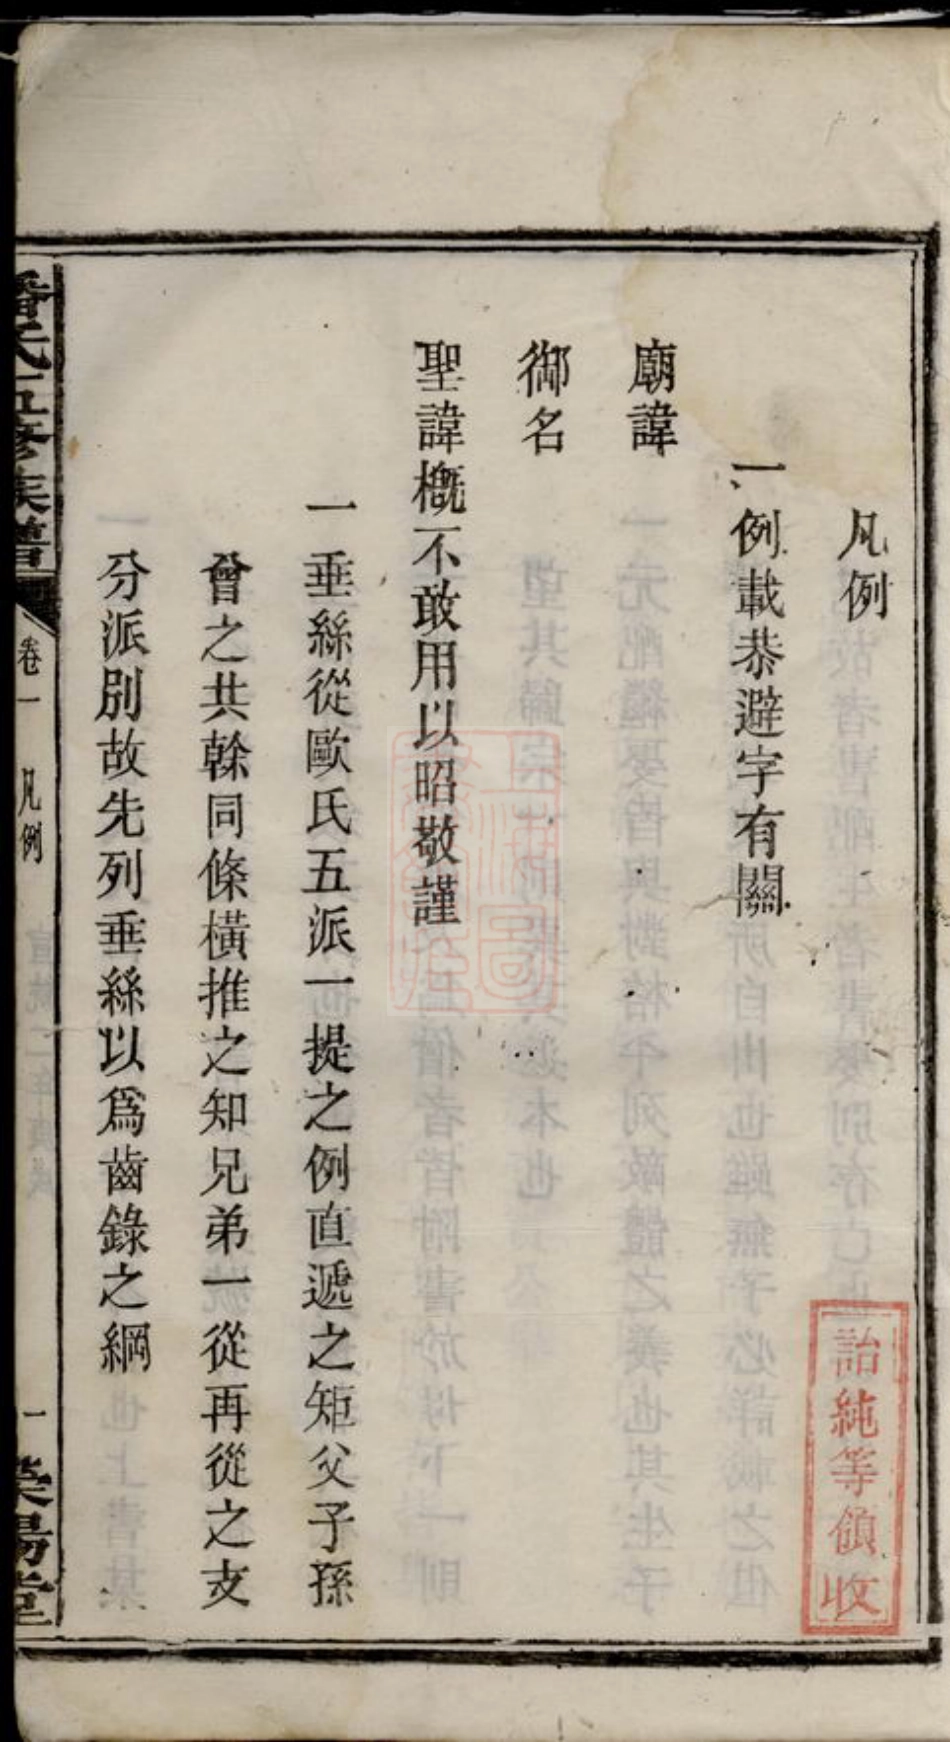 凡例
一例載恭避字有關
廟諱
御名
聖諱概不敢用以昭敬謹
一垂絲從歐氏五派一提之例直遞之矩父子孫
曾之共榦同條橫推之知兄弟一從再從之支
分派別故先列垂絲以爲齒錄之綱
潘氏五修族譜
卷一
凡例
一
榮陽堂
詒純等領收